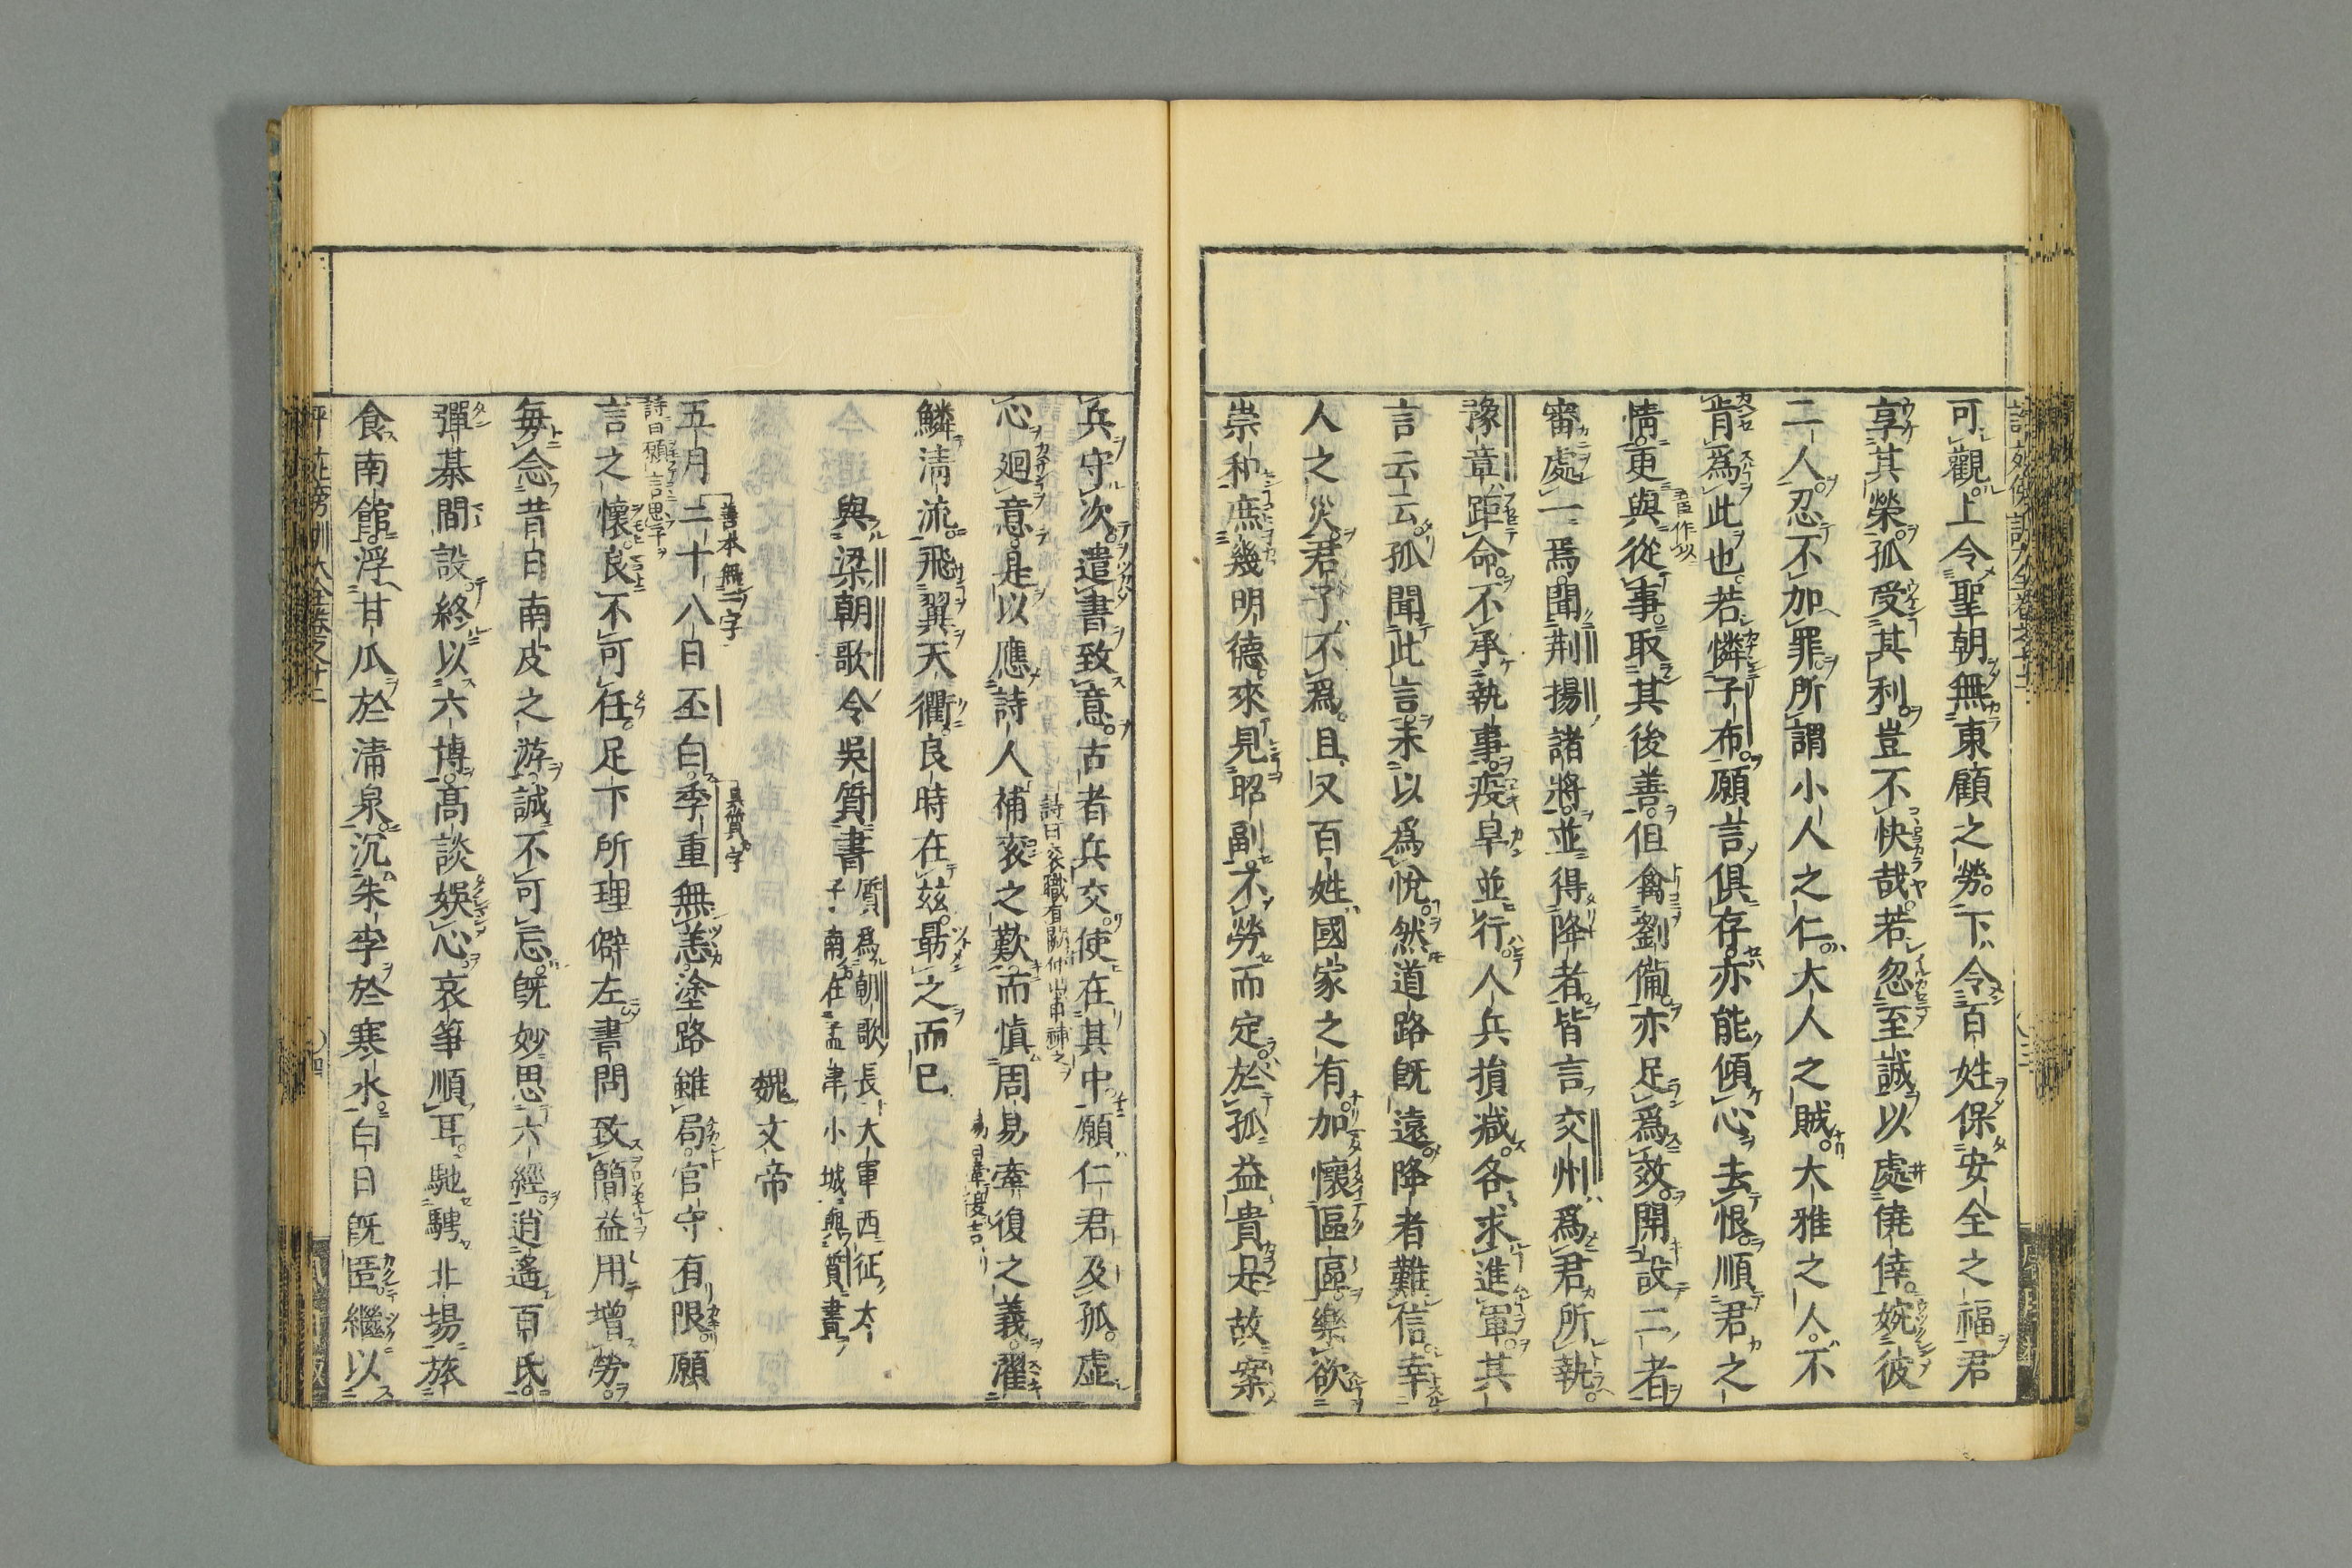 可觀上令聖朝無東顧之勞下令百姓保安全之福君
享其榮孤受其利豈不快哉若忽至誠以處僥倖婉彼
二人忍不加罪所謂小人之仁大人之賊大雅之人不
肯爲此也若憐子布願言俱存亦能傾心去恨順君之
情更與從事取其後善但禽劉備亦足爲效開設二者
五臣作以
審處一焉聞荆揚諸將並得降者皆言交州爲君所執
豫章距命不承執事疫旱並行人兵損减各求進軍其
言云云孤聞此言未以爲悅然道路旣遠降者難信幸
人之災君子不爲且又百姓國家之有加懷區區樂欲
崇和庶幾明德來見昭副不勞而定於孤益貴是故案
兵守次遣書致意古者兵交使在其中願仁君及孤虛
心廻意是以應詩人補衮之歎而愼周易牽復之義濯
詩曰衮職有闕仲山甫補之
易曰牽復吉
鱗淸流飛翼天衢良時在茲勗之而已
與梁朝歌令吳質書
質爲朝歌長大軍西征太
子南在孟津小城與質書
魏文帝
五月二十八日丕白季重無恙塗路雖局官守有限願
善本無二字
吳質字
言之懷良不可任足下所理僻左書問致簡益用增勞
詩曰願言思子
每念昔日南皮之游誠不可忘旣妙思六經逍遙百氏
彈棊間設終以六博高談娛心哀箏順耳馳騁北場旅
食南館浮甘瓜於淸泉沉朱李於寒水白日旣匿繼以